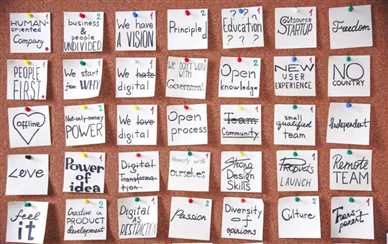 HUMAN-
oriented
Company
1
business
& people
UNDIVIDED
2
We have
A VISION
1
Principle
2
Education
? ? ?
2
Outsource
STARTUP
1
Freedom
1
PEOPLE
FIRST
We start
from WHY
We hate
digital
1
We don't work
with
Government
Open
knowledge
2
NEW
USER
EXPERIENCE
1
NO
COUNTRY
1
Offline
1
Not-only-money
POWER
We love
digital
2
Open
process
Team
Community
1
small
qualified
team
2
Independent
Love
Power
of idea
Digital
Transforma-
tion
1
ourselves
Strong
Design
Skills
1
LAUNCH
1
Remote
TEAM
1
Feel
it
1
Creative in
PRODUCT
development
2
Digital
AS
Passion
Diversity
of
opinions
2
Culture
2
Transparent
1